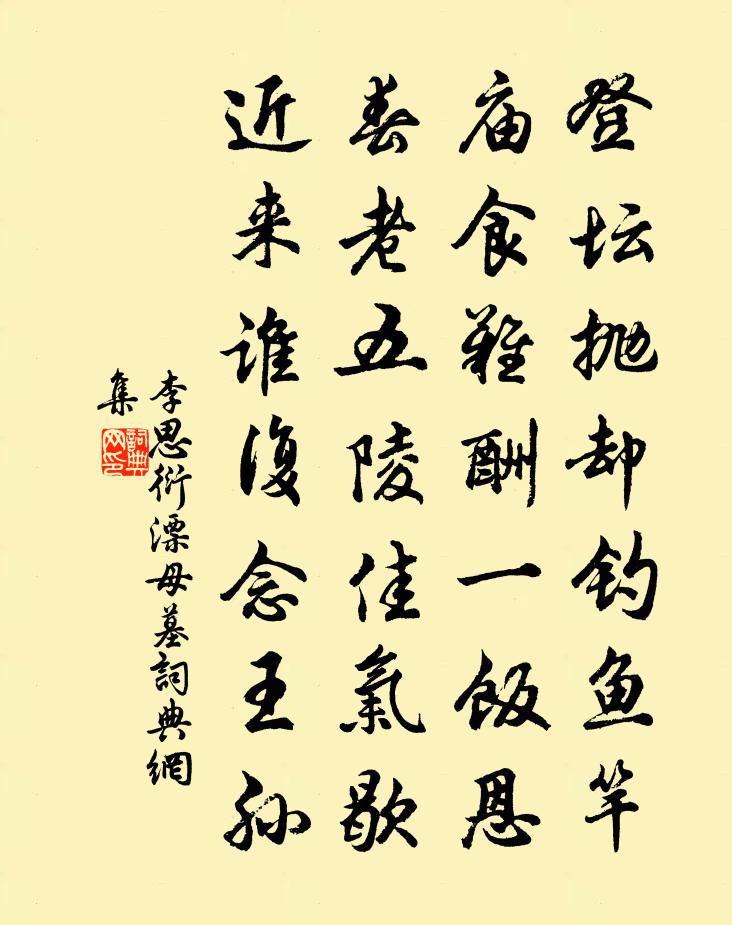 登坛抛却钓鱼竿
庙食难酬一饭恩
春老五陵佳氣歇
近来谁復念王孙
李思衍漂母墓詞典網
集
詞典网印